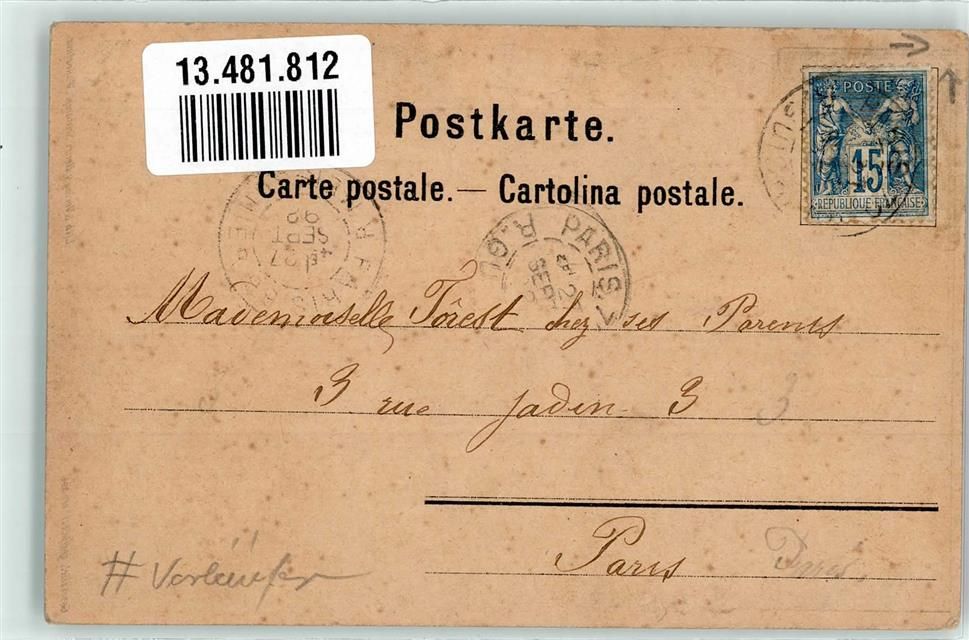 13.481.812
Postkarte.
Carte postale. — Cartolina postale.
POSTE
15
REPUBLIQUE FRANÇAISE
PARIS
SEPT
27
SEPT
Mademoiselle Tôrest chez ses Parents
3 rue Jadin 3 3
Paris Paris
# Vorläufer